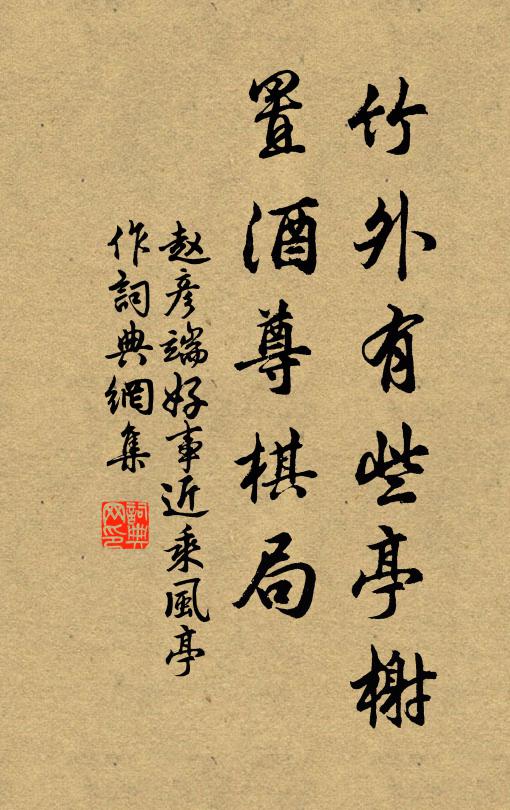 竹外有些亭榭
置酒尊棋局
赵彦端好事近乘風亭
作詞典網集
詞典网印